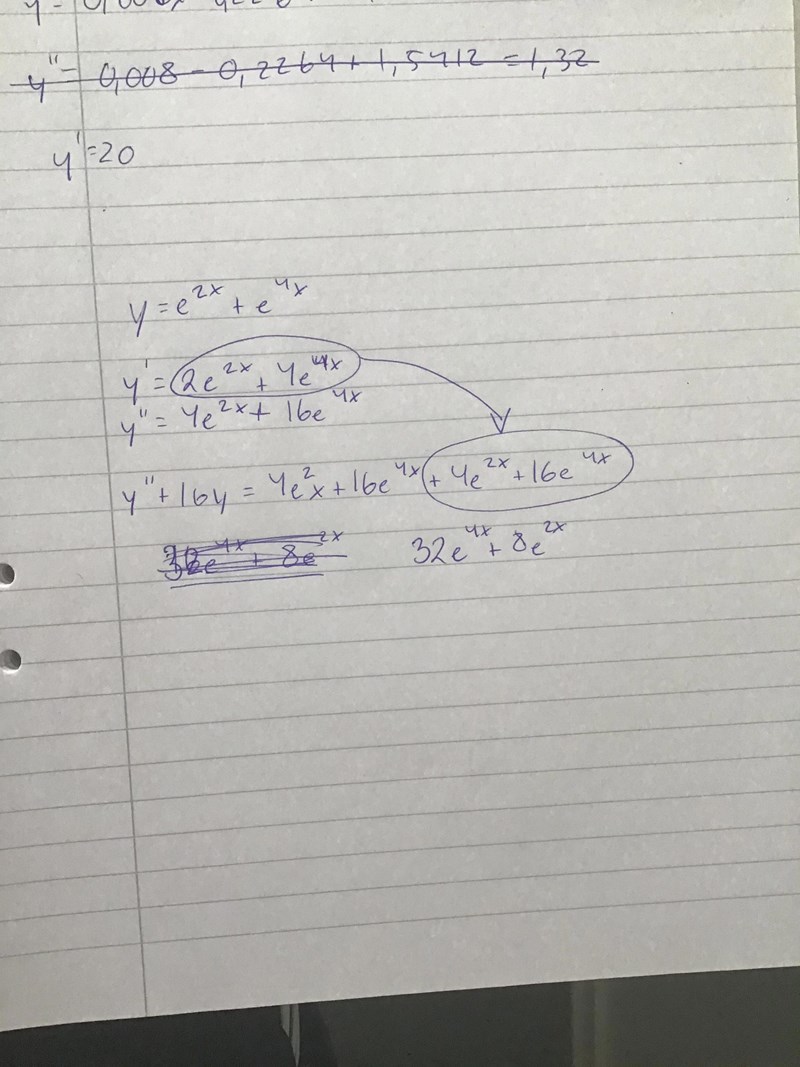 y'' = 0,008 - 0,2264 + 1,5412 = 1,32
y' = 20
y = e^{2x} + e^{4x}
y' = 2e^{2x} + 4e^{4x}
y'' = 4e^{2x} + 16e^{4x}
y'' + 16y = 4e^{2}x + 16e^{4x} + 4e^{2x} + 16e^{4x}
32e^{4x} + 8e^{2x} 32e^{4x} + 8e^{2x}